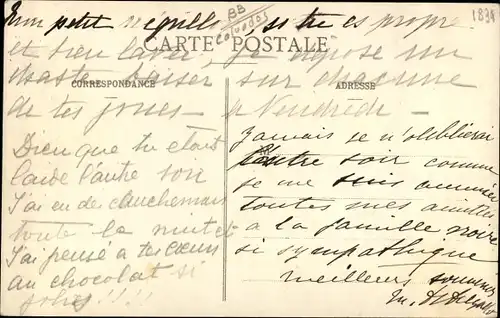 Mon petit négrillon si tu es propre
et bien lavé, je dépose un
chaste baiser sur chacune
de tes joues — à Vendredi —
BB
1834
CARTE POSTALE
CORRESPONDANCE
ADRESSE
Dieu que tu étais
laide l'autre soir
J'ai eu des cauchemars
toute la nuit et
J'ai pensé a tes cœurs
au chocolat si
jolis !!!!
Jamais je n'oublierai
l'autre soir comme
je me suis amusée
toutes mes amitiés
a la famille noire
si sympathique
Meilleurs souvenirs